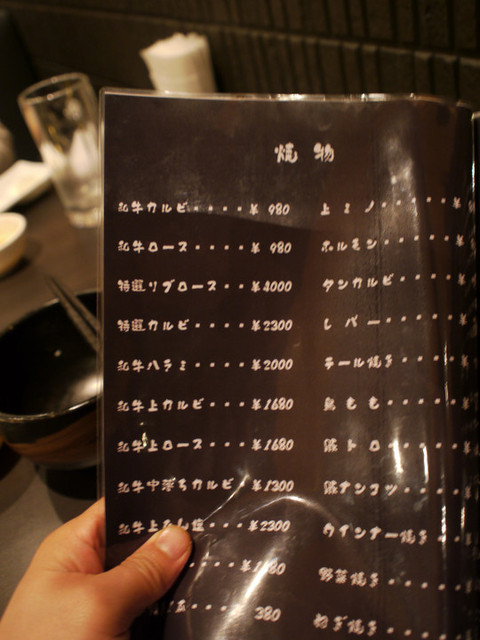 焼物
和牛カルビ・・・・¥980
和牛ロース・・・・¥980
特選リブロース・・・¥4000
特選カルビ・・・・¥2300
和牛ハラミ・・・・¥2000
和牛上カルビ・・・¥1680
和牛上ロース・・・¥1680
和牛中落ちカルビ・¥1300
和牛上たん塩・・・¥2300
380
上ミノ・・・・・¥
ホルモン・・・・・¥
タンカルビ・・・・¥
レバー・・・・・¥
テール焼き・・・・
鳥もも・・・・・
豚トロ・・・・・
豚ナンコツ・・・・
ウインナー焼き・・
野菜焼き・・・・・
ねぎ焼き・・・・・